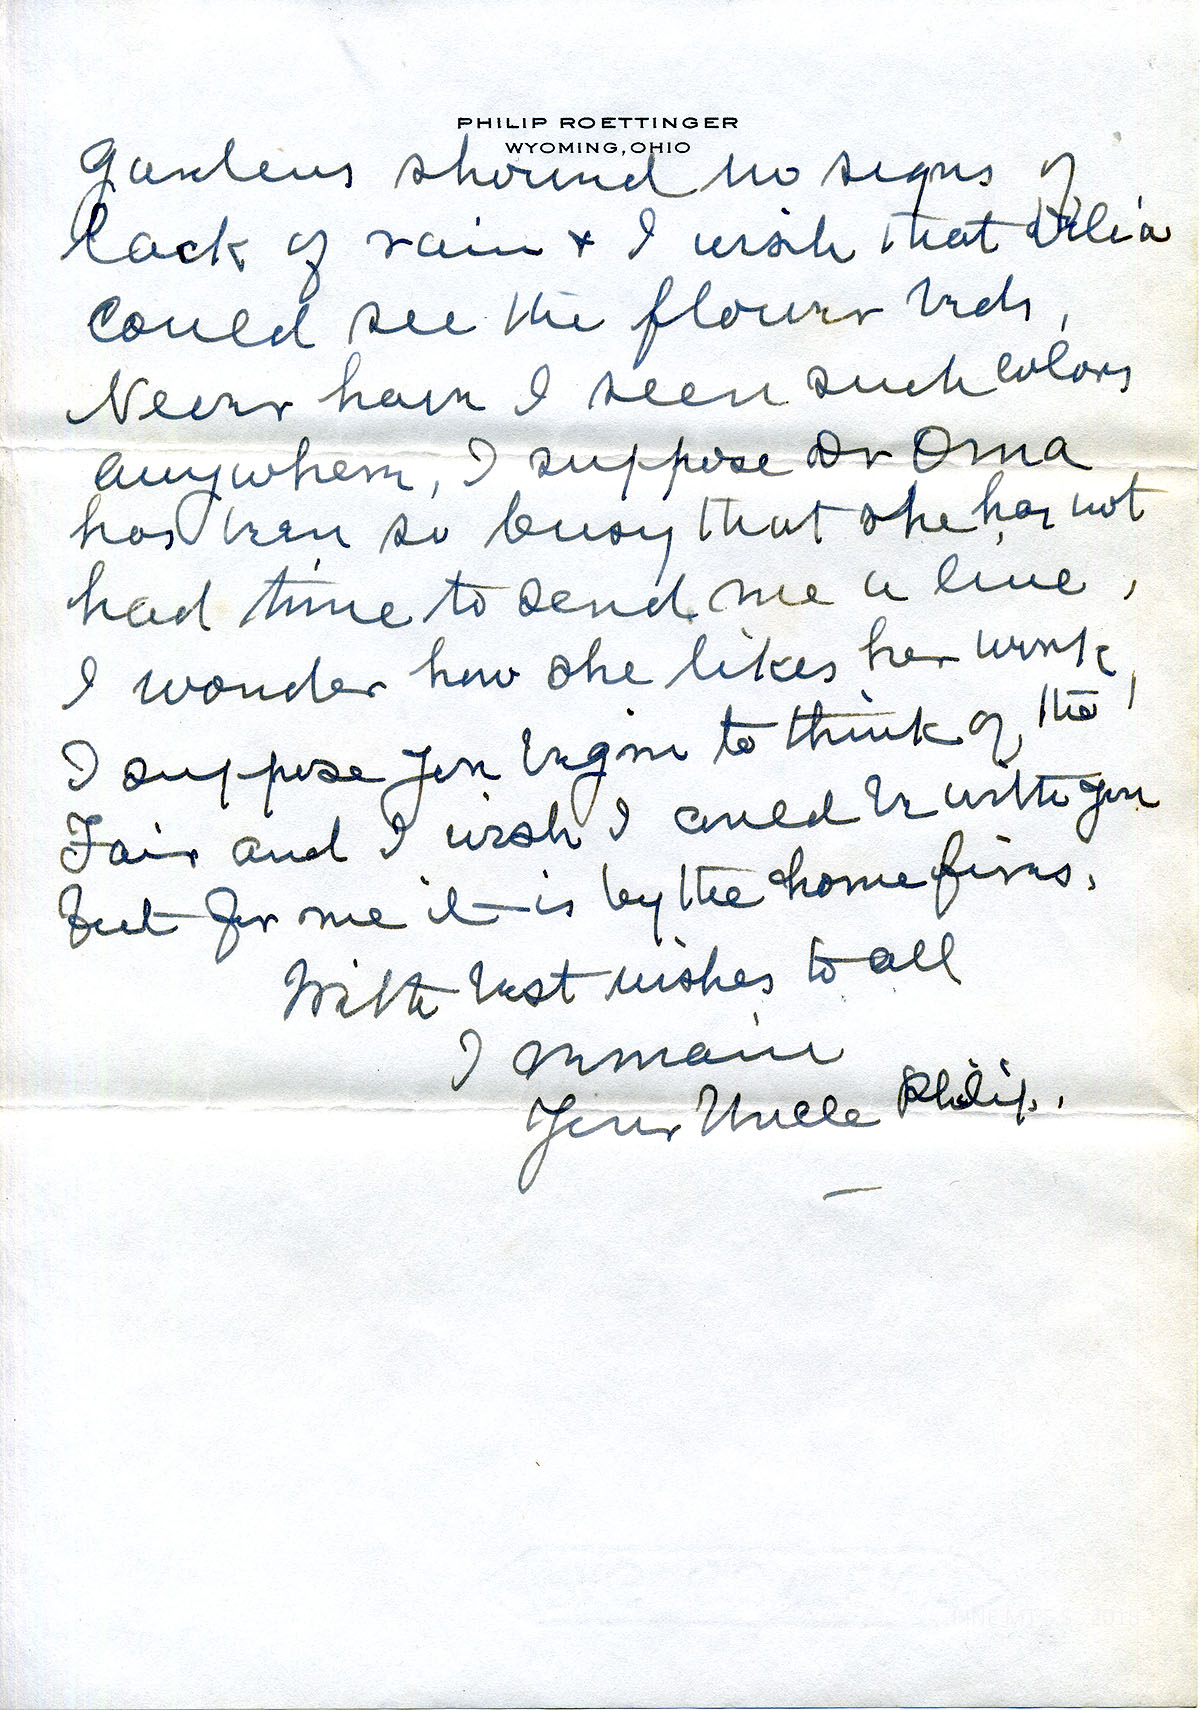 PHILIP ROETTINGER
WYOMING, OHIO
gardens showed no signs of
lack of rain + I wish that Delia
could see the flower beds,
Never have I seen such colors
anywhere, I suppose Dr Oma
has been so busy that she has not
had time to send me a line,
I wonder how she likes her work,
I suppose you begin to think of the
Fair and I wish I could be with you
but for me it is by the home fires.
With best wishes to all
I remain
Your Uncle Philip.